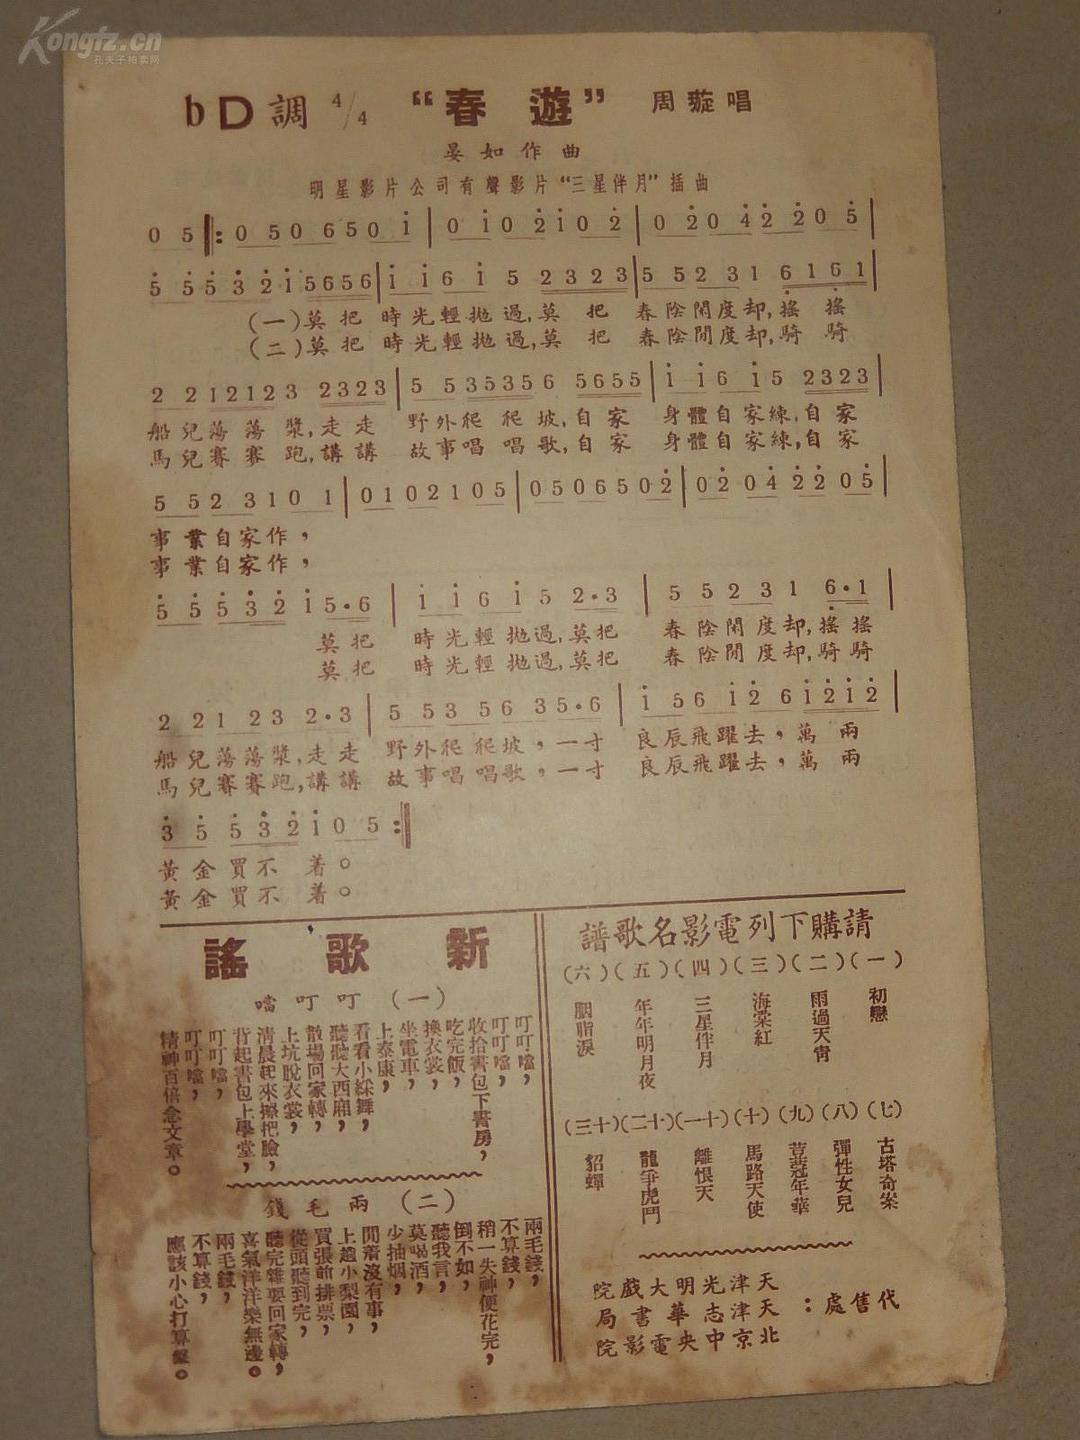 Kongfz.cn
孔夫子拍卖网
bD調 4/4 “春遊” 周璇唱
晏如作曲
明星影片公司有聲影片“三星伴月”插曲
0 5 ‖: 0 5 0 6 5 0 i | 0 i 0 2 i 0 2 | 0 2 0 4 2 2 0 5 |
5 5 5 3 2 i 5 6 5 6 | i i 6 i 5 2 3 2 3 | 5 5 2 3 1 6 1 6 1 |
(一)莫把 時光輕拋過,莫 把 春陰閑度却,搖 搖
(二)莫把 時光輕拋過,莫 把 春陰閒度却,騎 騎
2 2 1 2 1 2 3 2 3 2 3 | 5 5 3 5 3 5 6 5 6 5 5 | i i 6 i 5 2 3 2 3 |
船兒蕩蕩槳,走走 野外爬爬坡,自家 身體自家練,自家
馬兒賽賽跑,講講 故事唱唱歌,自家 身體自家練,自家
5 5 2 3 1 0 1 | 0 1 0 2 1 0 5 | 0 5 0 6 5 0 2 | 0 2 0 4 2 2 0 5 |
事業自家作,
事業自家作,
5 5 5 3 2 i 5 . 6 | i i 6 i 5 2 . 3 | 5 5 2 3 1 6 . 1 |
莫把 時光輕拋過,莫把 春陰閑度却,搖搖
莫把 時光輕拋過,莫把 春陰閒度却,騎騎
2 2 1 2 3 2 . 3 | 5 5 3 5 6 3 5 . 6 | i 5 6 i 2 6 i 2 i 2 |
船兒蕩蕩槳,走走 野外爬爬坡,一寸 良辰飛躍去,萬兩
馬兒賽賽跑,講講 故事唱唱歌,一寸 良辰飛躍去,萬兩
3 5 5 3 2 i 0 5 :‖
黃金買不 着。
黃金買不 着。
新歌謠
(一) 叮叮噹
叮叮噹,
叮叮噹,
收拾書包下書房,
吃完飯,
換衣裳,
坐電車,
上泰康,
看看小綵舞,
聽聽大西廂,
散場回家轉,
上炕脫衣裳,
清晨起來擦把臉,
背起書包上學堂,
叮叮噹,
叮叮噹,
精神百倍念文章。
(二) 兩毛錢
兩毛錢,
不算錢,
稍一失神便花完,
倒不如,
聽我言,
莫喝酒,
少抽烟,
閒着沒有事,
上趟小梨園,
買張前排票,
從頭聽到完,
聽完雜耍回家轉,
喜氣洋洋樂無邊。
兩毛錢,
不算錢,
應該小心打算盤。
請購下列電影名歌譜
(一) 初戀
(二) 雨過天青
(三) 海棠紅
(四) 三星伴月
(五) 年年明月夜
(六) 胭脂淚
(七) 古塔奇案
(八) 彈性女兒
(九) 荳蔻年華
(十) 馬路天使
(十一) 離恨天
(十二) 龍爭虎鬥
(十三) 貂蟬
代售處:
天津光明大戲院
天津志華書局
北京中央電影院